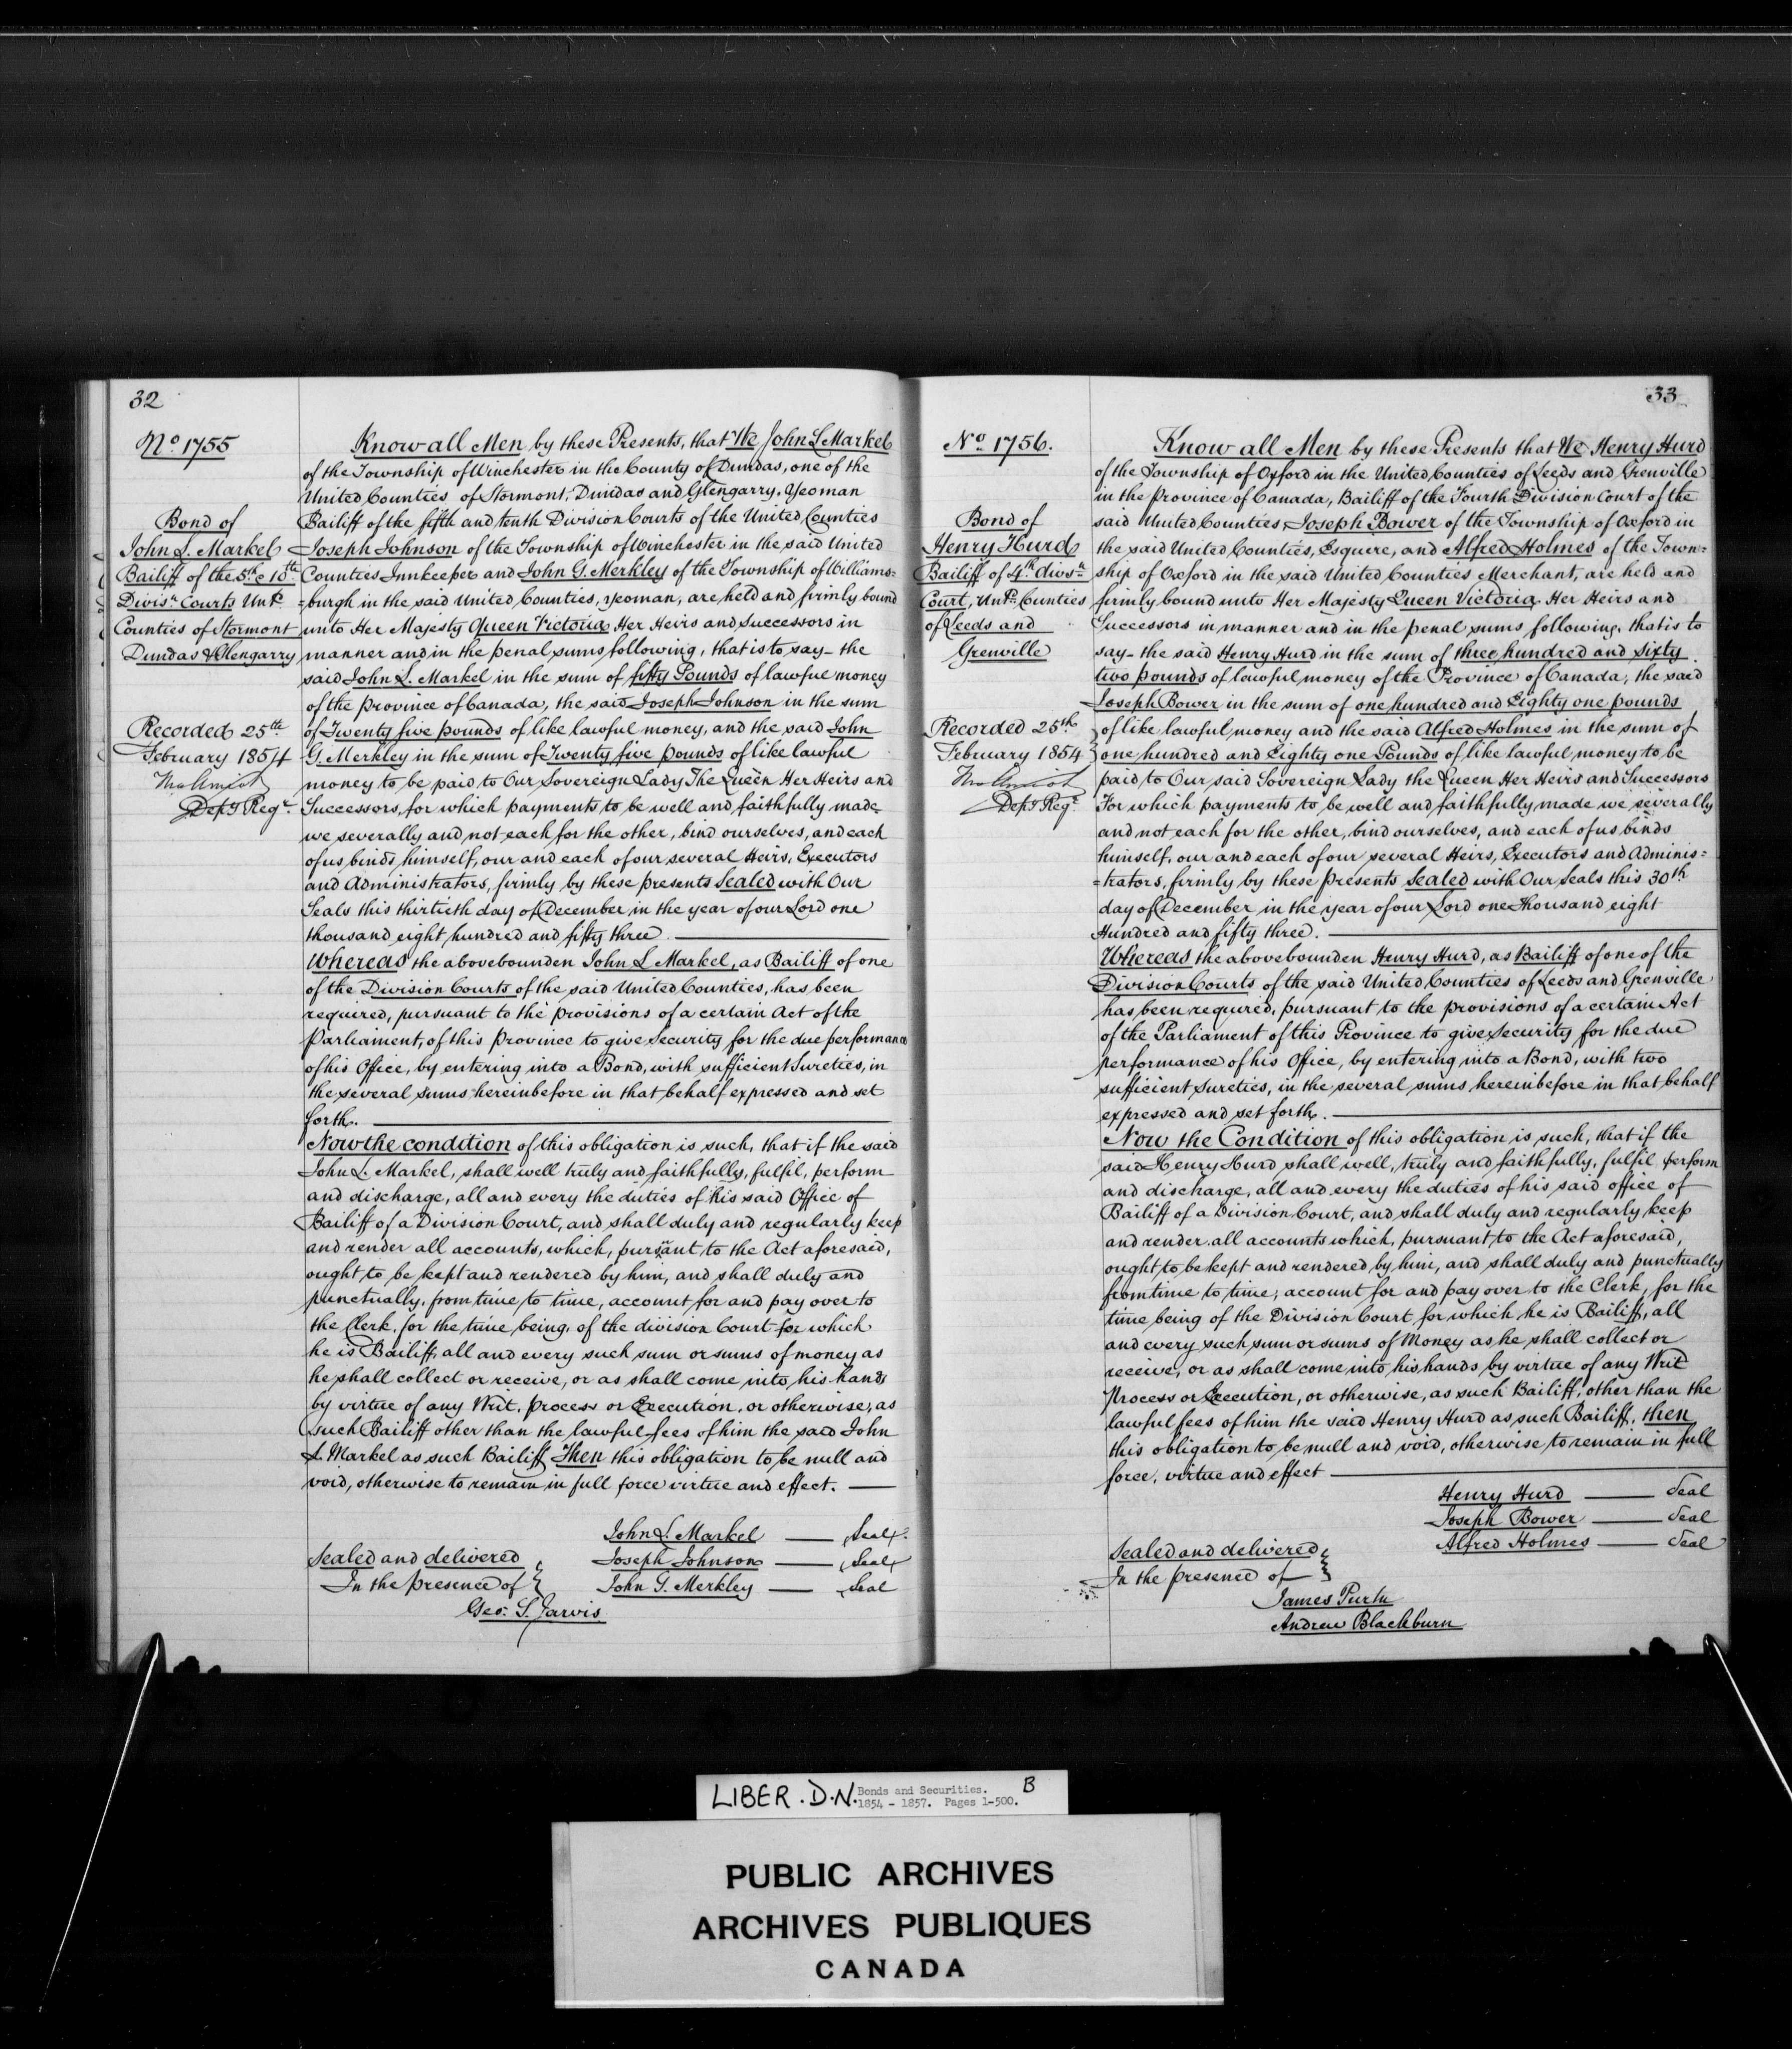 32
No 1755
Bond of
John L. Markel
Bailiff of the 5th & 10th
Divisn Courts Untd
Counties of Stormont
Dundas & Glengarry
Recorded 25th
February 1854
Depy Regr
Know all Men by these Presents, that We John L Markel
of the Township of Winchester in the County of Dundas, one of the
United Counties of Stormont, Dundas and Glengarry, Yeoman
Bailiff of the fifth and tenth Division Courts of the United Counties
Joseph Johnson of the Township of Winchester in the said United
Counties Innkeeper and John G. Merkley of the Township of Williams=
=burgh in the said United Counties, yeoman, are held and firmly bound
unto Her Majesty Queen Victoria Her Heirs and Successors in
manner and in the penal sums following, that is to say - the
said John L. Markel in the sum of fifty Pounds of lawful money
of the Province of Canada, the said Joseph Johnson in the sum
of Twenty five pounds of like lawful money, and the said John
G. Merkley in the sum of Twenty five pounds of like lawful
money to be paid to Our Sovereign Lady The Queen Her Heirs and
Successors, for which payments to be well and faithfully made
we severally and not each for the other, bind ourselves, and each
of us binds himself, our and each of our several Heirs, Executors
and Administrators, firmly by these presents Sealed with Our
Seals this thirtieth day of December in the year of our Lord one
thousand eight hundred and fifty three.
Whereas the abovebounden John L Markel, as Bailiff of one
of the Division Courts of the said United Counties, has been
required, pursuant to the provisions of a certain Act of the
Parliament, of this Province to give Security for the due performance
of his Office, by entering into a Bond, with sufficient Sureties, in
the several sums hereinbefore in that behalf expressed and set
forth.
Now the condition of this obligation is such, that if the said
John L. Markel, shall well truly and faithfully, fulfil, perform
and discharge, all and every the duties of his said Office of
Bailiff of a Division Court, and shall duly and regularly keep
and render all accounts, which, pursuant to the Act aforesaid,
ought to be kept and rendered by him, and shall duly and
punctually, from time to time, account for and pay over to
the Clerk, for the time being, of the division Court for which
he is Bailiff, all and every such sum or sums of money as
he shall collect or receive, or as shall come into his hands
by virtue of any Writ, process or Execution, or otherwise, as
such Bailiff other than the lawful fees of him the said John
L. Markel as such Bailiff Then this obligation to be null and
void, otherwise to remain in full force virtue and effect.
John L. Markel — Seal
Sealed and delivered Joseph Johnson — Seal
In the presence of John G. Merkley — Seal
Geo: S. Jarvis
33
No 1756.
Bond of
Henry Hurd
Bailiff of 4th divisn
Court, Untd Counties
of Leeds and
Grenville
Recorded 25th
February 1854
Depy Regr
Know all Men by these Presents that We Henry Hurd
of the Township of Oxford in the United Counties of Leeds and Grenville
in the Province of Canada, Bailiff of the Fourth Division Court of the
said United Counties, Joseph Bower of the Township of Oxford in
the said United Counties, Esquire, and Alfred Holmes of the Town=
ship of Oxford in the said United Counties Merchant, are held and
firmly bound unto Her Majesty Queen Victoria Her Heirs and
Successors in manner and in the penal sums following, that is to
say - the said Henry Hurd in the sum of three hundred and sixty
two pounds of lawful money of the Province of Canada, the said
Joseph Bower in the sum of one hundred and Eighty one pounds
of like lawful money and the said Alfred Holmes in the sum of
one hundred and Eighty one Pounds of like lawful money to be
paid to Our said Sovereign Lady the Queen Her Heirs and Successors
For which payments to be well and faithfully made we severally
and not each for the other, bind ourselves, and each of us binds
himself, our and each of our several Heirs, Executors and Adminis=
=trators, firmly by these presents Sealed with Our Seals this 30th
day of December in the year of our Lord one Thousand eight
Hundred and fifty three.
Whereas the abovebounden Henry Hurd, as Bailiff of one of the
Division Courts of the said United Counties of Leeds and Grenville
has been required, pursuant to the provisions of a certain Act
of the Parliament of this Province to give Security for the due
performance of his Office, by entering into a Bond, with two
sufficient sureties, in the several sums, hereinbefore in that behalf
expressed and set forth.
Now the Condition of this obligation is such, that if the
said Henry Hurd shall well, truly and faithfully, fulfil, perform
and discharge, all and every the duties of his said office of
Bailiff of a Division Court, and shall duly and regularly keep
and render all accounts which, pursuant to the Act aforesaid,
ought to be kept and rendered by him, and shall duly and punctually
from time to time, account for and pay over to the Clerk, for the
time being of the Division Court for which he is Bailiff, all
and every such sum or sums of Money as he shall collect or
receive, or as shall come into his hands by virtue of any Writ
Process or Execution, or otherwise, as such Bailiff, other than the
lawful fees of him the said Henry Hurd as such Bailiff, then
this obligation to be null and void, otherwise to remain in full
force, virtue and effect
Henry Hurd — Seal
Joseph Bower — Seal
Sealed and delivered Alfred Holmes — Seal
In the presence of
James
Andrew Blackburn
LIBER . D.N. Bonds and Securities. B
1854 - 1857. Pages 1-500.
PUBLIC ARCHIVES
ARCHIVES PUBLIQUES
CANADA